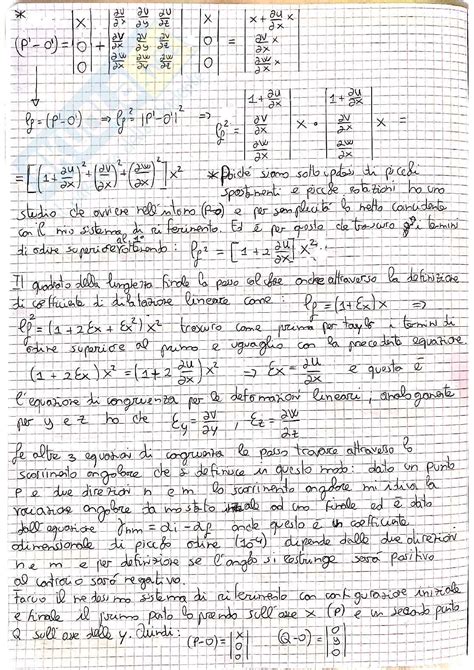 *
(P'-O') = |x 0 0| + |∂u/∂x ∂u/∂y ∂u/∂z; ∂v/∂x ∂v/∂y ∂v/∂z; ∂w/∂x ∂w/∂y ∂w/∂z| |x 0 0| = |x + ∂u/∂x x; ∂v/∂x x; ∂w/∂x x|
lf = (P'-O') ⇒ lf² = |P'-O'|² ⇒ lf² = |1+∂u/∂x; ∂v/∂x; ∂w/∂x| x • |1+∂u/∂x; ∂v/∂x; ∂w/∂x| x =
= [(1+∂u/∂x)² + (∂v/∂x)² + (∂w/∂x)²] x² * Poiché siamo sotto ipotesi di piccoli
spostamenti e piccole rotazioni ho uno
studio che avviene nell'intorno (P-O) e per semplicità lo metto coincidente
con il mio sistema di riferimento. Ed è per questo che trascuro i termini
di ordine superiore al 1° ottenendo: lf² = [1+2 ∂u/∂x] x²
Il quadrato della lunghezza finale lo posso calcolare anche attraverso la definizione
di coefficiente di dilatazione lineare come: lf = (1+εx)x ⇒
lf² = (1+2εx+εx²)x² trascuro come prima per taylor i termini di
ordine superiore al primo e uguaglio con la precedente equazione.
(1+2εx)x² = (1+2 ∂u/∂x)x² ⇒ εx = ∂u/∂x e questa è
l'equazione di congruenza per le deformazioni lineari, analogamente
per y e z ho che εy = ∂v/∂y , εz = ∂w/∂z
Le altre 3 equazioni di congruenza le posso trovare attraverso lo
scorrimento angolare che si definisce in questo modo: dato un punto
P e due direzioni n e m lo scorrimento angolare mi dà la
variazione angolare da uno stato iniziale ad uno finale ed è dato
dall'equazione γnm = αi - αf anche questo è un coefficiente
adimensionale di piccolo ordine (10⁻⁴) dipende dalle due direzioni
n e m e per definizione se l'angolo si restringe sarà positivo
al contrario sarà negativo.
Faccio il medesimo sistema di riferimento con configurazione iniziale
e finale il primo punto lo prendo sull'asse x (P) e un secondo punto
Q sull'asse delle y. Quindi: (P-O) = |x 0 0| (Q-O) = |0 y 0|